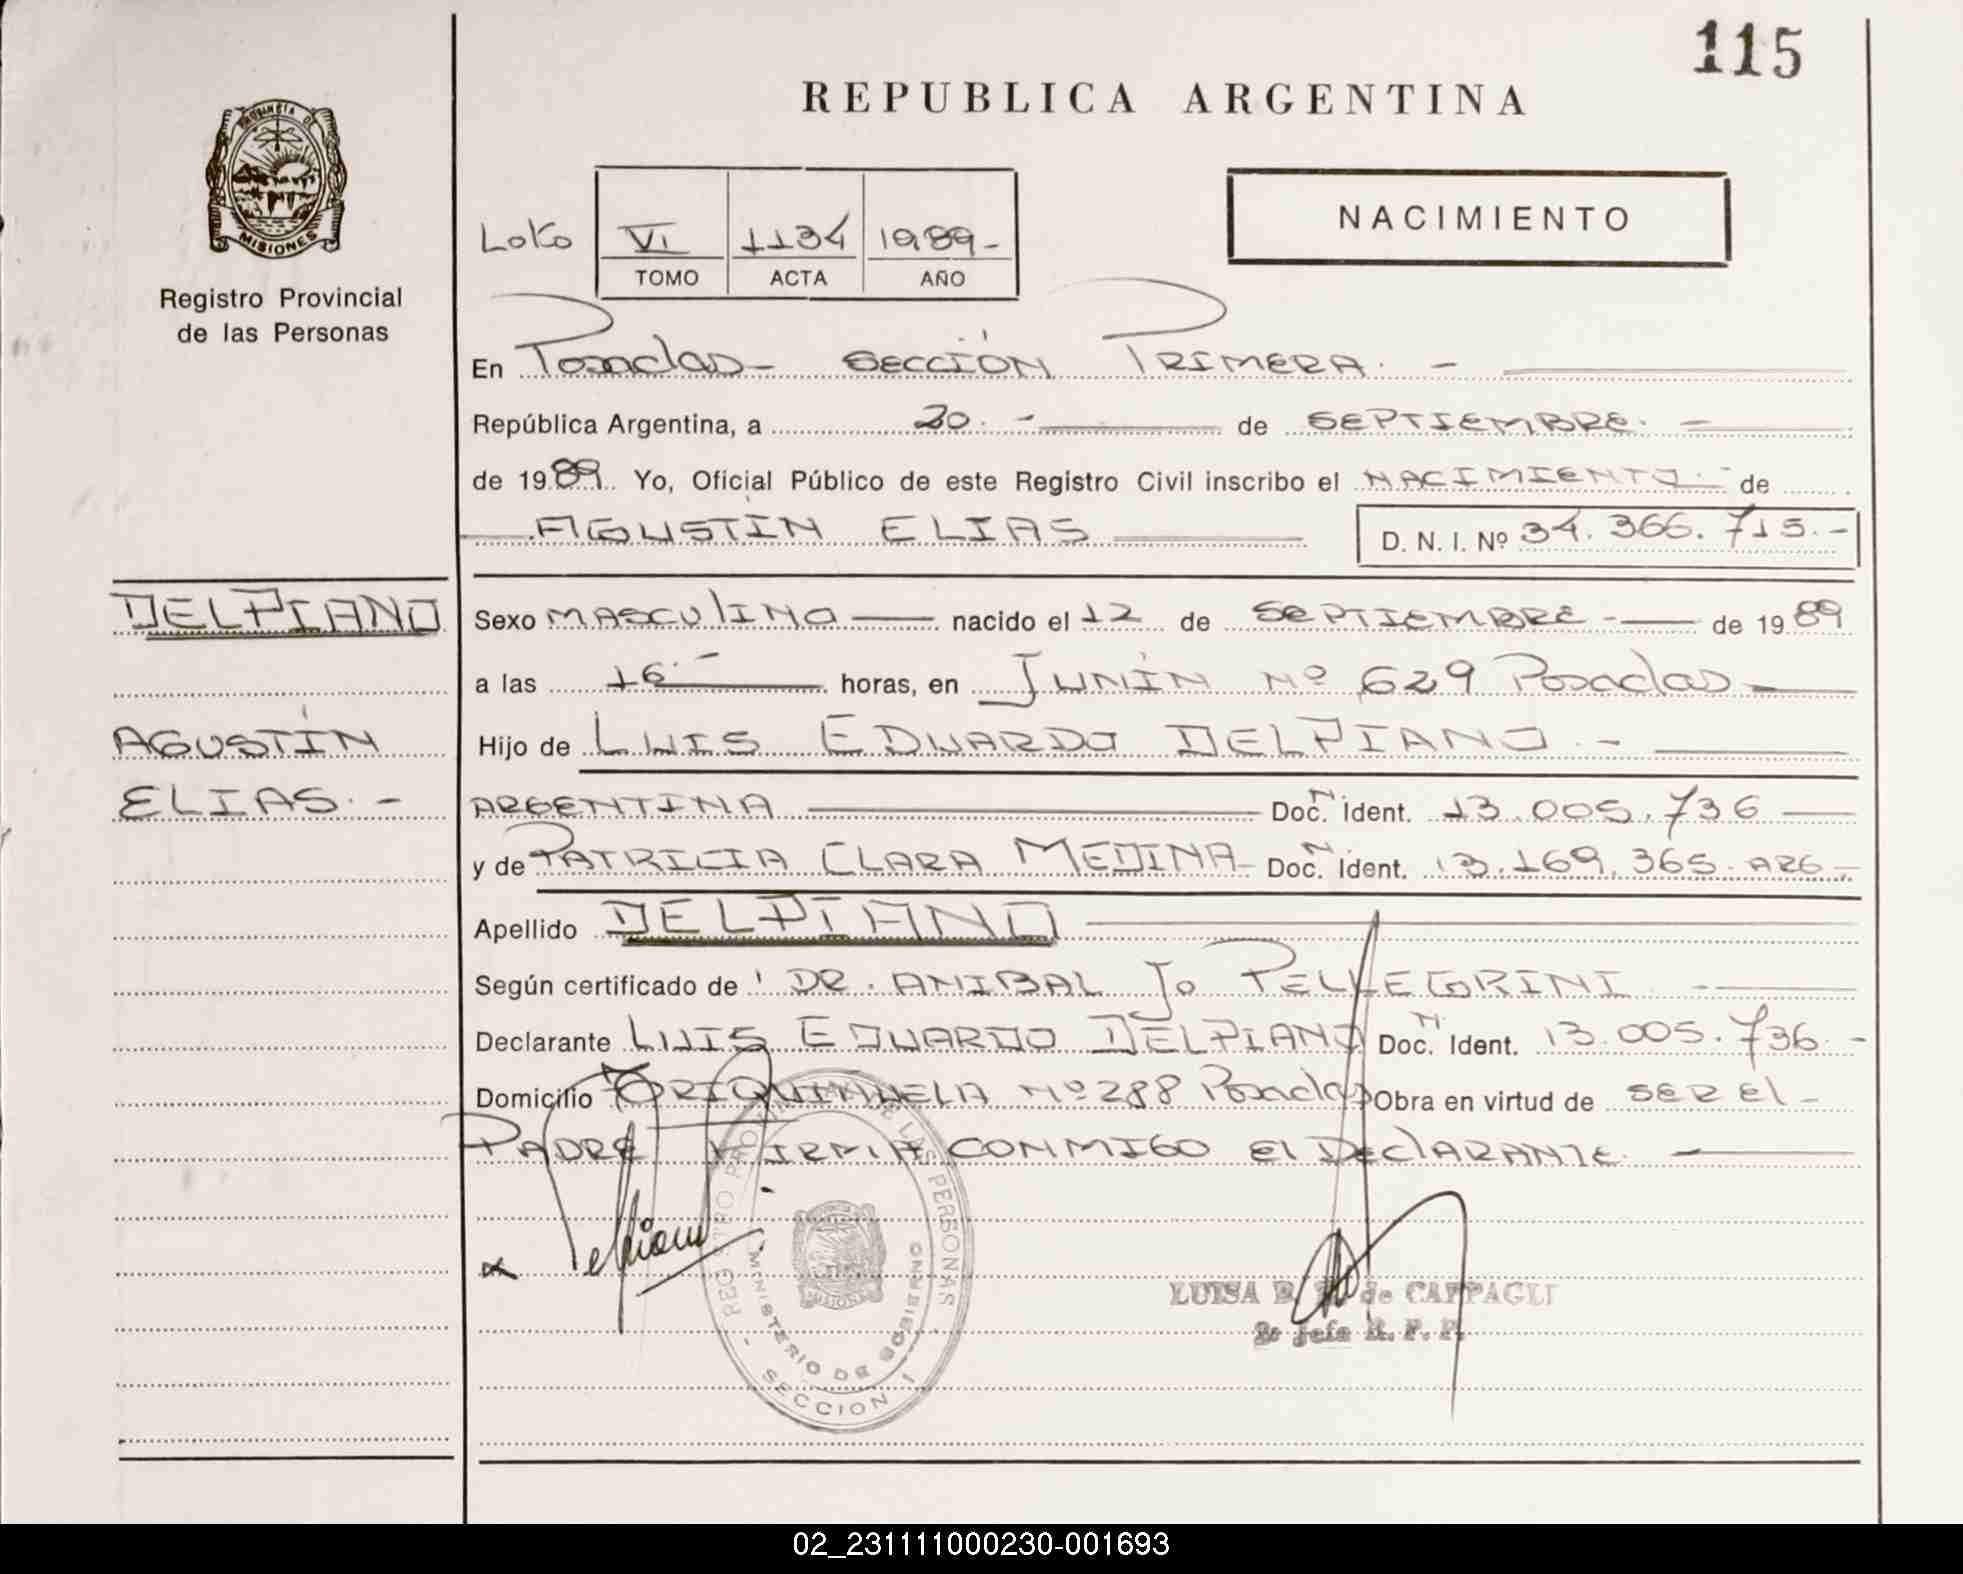 115
REPUBLICA ARGENTINA
PROVINCIA DE
MISIONES
Registro Provincial
de las Personas
VI 1134 1989-
TOMO ACTA AÑO
NACIMIENTO
En Posadas- SECCIÓN PRIMERA. -
República Argentina, a 20. - de SEPTIEMBRE. -
de 1989. Yo, Oficial Público de este Registro Civil inscribo el NACIMIENTO.- de
AGUSTÍN ELIAS D. N. I. Nº 34.366.715.-
DELPIANO
AGUSTÍN
ELIAS. -
Sexo MASCULINO — nacido el 12 de SEPTIEMBRE - — de 1989
a las 16.- horas, en JUNÍN Nº 629 Posadas —
Hijo de LUIS EDUARDO DELPIANO. -
ARGENTINA — Doc. N. Ident. 13.005.736 —
y de PATRICIA CLARA MEDINA- Doc. N. Ident. 13.169.365. ARG.-
Apellido DELPIANO
Según certificado de DR. ANIBAL J. PELLEGRINI -
Declarante LUIS EDUARDO DELPIANO Doc. N. Ident. 13.005.736.-
Domicilio Nº 288 Posadas Obra en virtud de SER El -
PADRE FIRMA CONMIGO El DEClARANTE. -
REGISTRO PROVINCIAL DE LAS PERSONAS
MINISTERIO DE GOBIERNO
MISIONES
- SECCION 1 -
LUISA de CAPPAGLI
Jefe R. P. P.
02_231111000230-001693